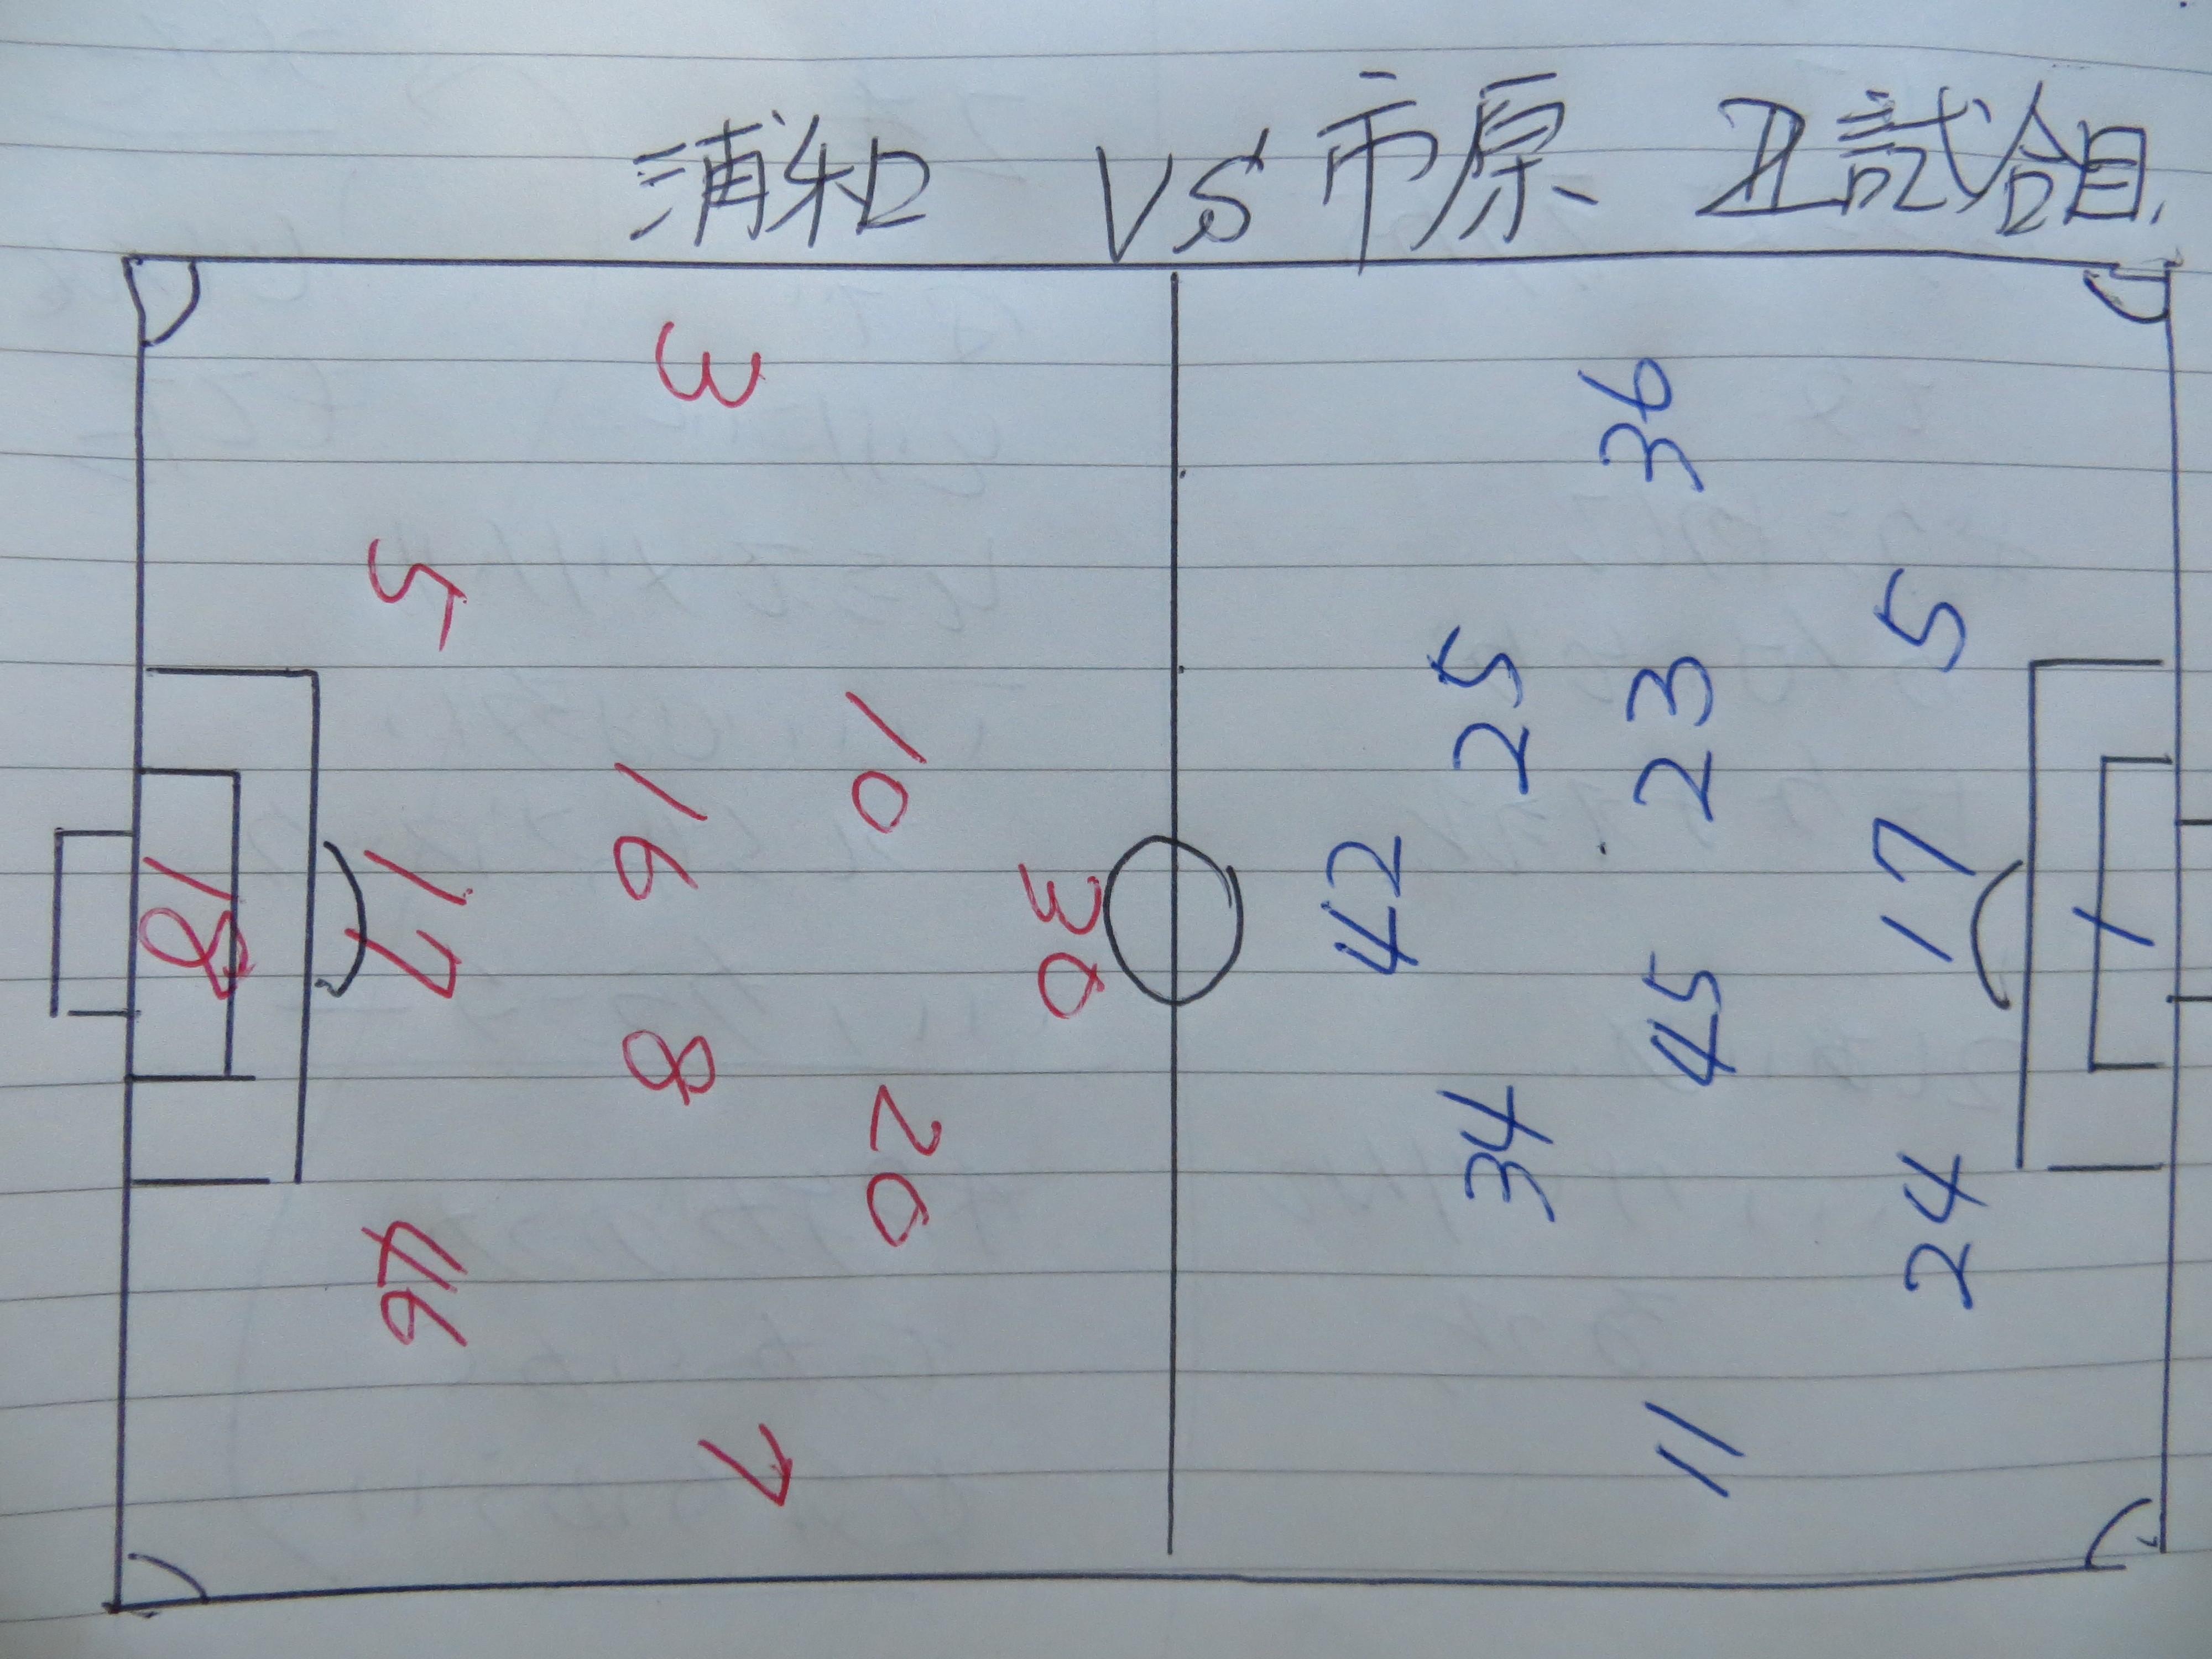 浦和 VS 市原 正試合組
3
36
5
5
10
25
23
16
17
18
17
30
42
1
8
45
20
34
46
24
7
11